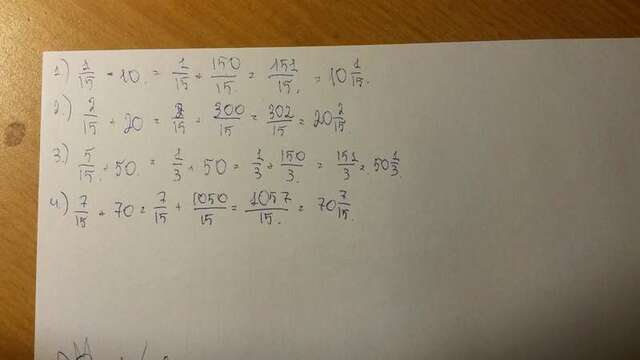 1) 1/15 + 10 = 1/15 + 150/15 = 151/15 = 10 1/15.
2) 2/15 + 20 = 2/15 = 300/15 = 302/15 = 20 2/15
3) 5/15 + 50 = 1/3 + 50 = 1/3 + 150/3 = 151/3 = 50 1/3.
4) 7/15 + 70 = 7/15 + 1050/15 = 1057/15 = 70 7/15.